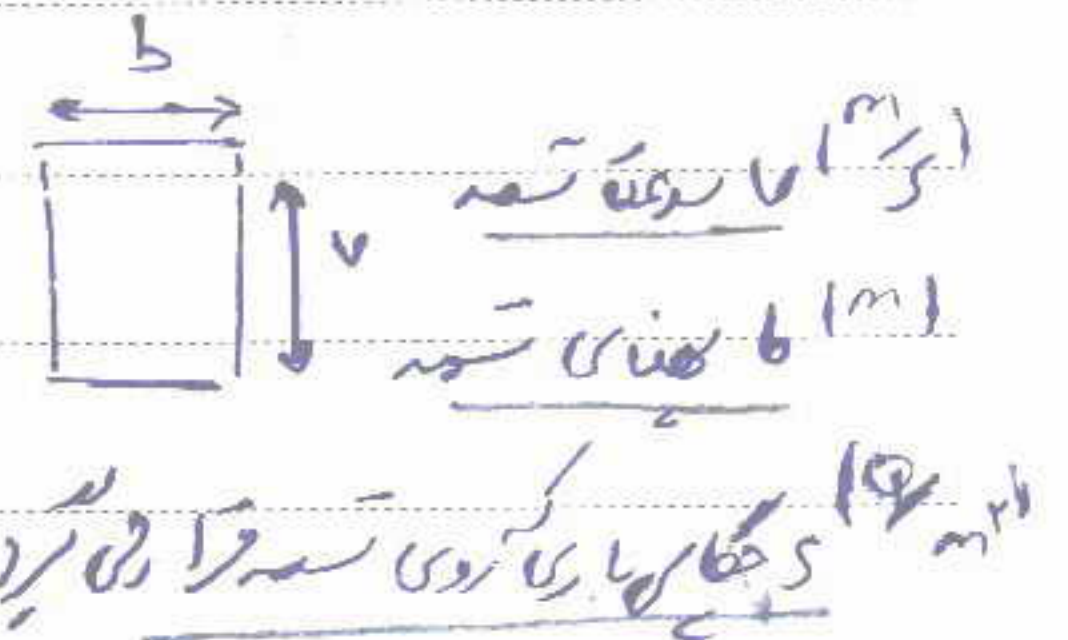 b
v
v سرعت تسمه (m/s)
b پهنای تسمه (m)
s چگالی باری که روی تسمه قرار می گیرد (Q/m²)